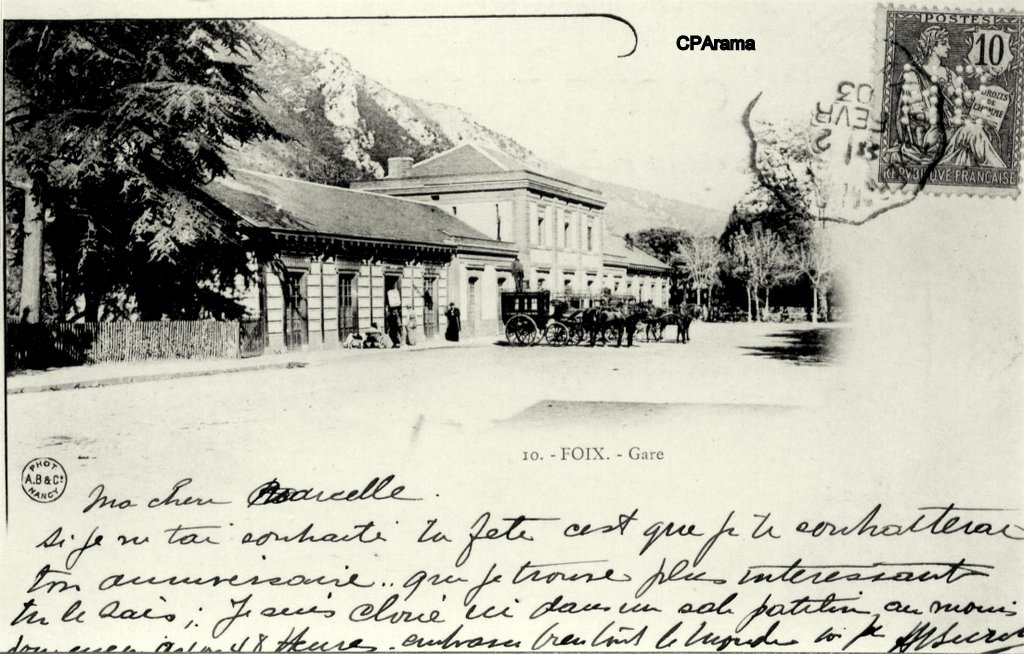 CPArama
POSTES
10
DROITS
DE
L'HOMME
REPUBLIQUE FRANÇAISE
2
FEVR
03
10. - FOIX. - Gare
PHOT
A.B & Cie
NANCY
Ma chère Marcelle.
Si je ne t'ai souhaité ta fête c'est que je te souhaiterai
ton anniversaire.. que je trouve plus intéressant
tu le sais; Je suis cloué ici dans un sale patelin, au moins
48 Heures. embrasse bien tout le monde